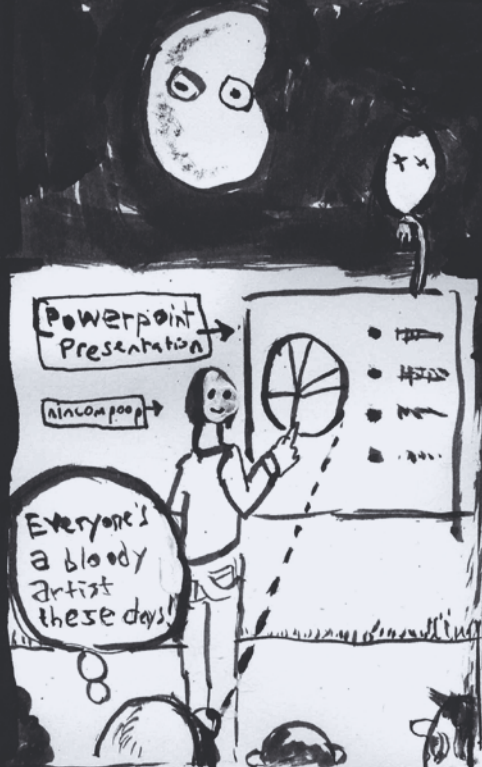 Powerpoint
Presentation
nincompoop
Everyone's
a bloody
artist
these days!